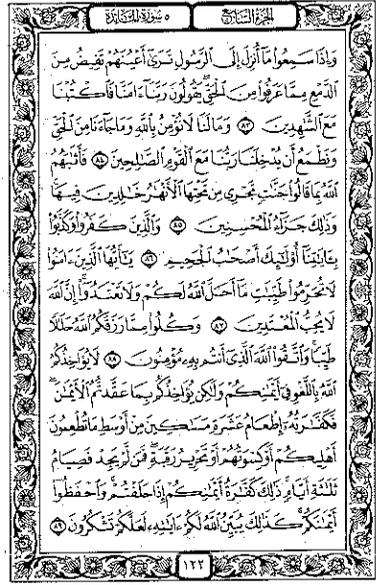 الجزء السابع ٥ سورة المائدة
وَإِذَا سَمِعُوا۟ مَآ أُنزِلَ إِلَى ٱلرَّسُولِ تَرَىٰٓ أَعْيُنَهُمْ تَفِيضُ مِنَ
ٱلدَّمْعِ مِمَّا عَرَفُوا۟ مِنَ ٱلْحَقِّ ۖ يَقُولُونَ رَبَّنَآ ءَامَنَّا فَٱكْتُبْنَا
مَعَ ٱلشَّٰهِدِينَ ٨٣ وَمَا لَنَا لَا نُؤْمِنُ بِٱللَّهِ وَمَا جَآءَنَا مِنَ ٱلْحَقِّ
وَنَطْمَعُ أَن يُدْخِلَنَا رَبُّنَا مَعَ ٱلْقَوْمِ ٱلصَّٰلِحِينَ ٨٤ فَأَثَٰبَهُمُ
ٱللَّهُ بِمَا قَالُوا۟ جَنَّٰتٍ تَجْرِى مِن تَحْتِهَا ٱلْأَنْهَٰرُ خَٰلِدِينَ فِيهَا
وَذَٰلِكَ جَزَآءُ ٱلْمُحْسِنِينَ ٨٥ وَٱلَّذِينَ كَفَرُوا۟ وَكَذَّبُوا۟
بِـَٔايَٰتِنَآ أُو۟لَٰٓئِكَ أَصْحَٰبُ ٱلْجَحِيمِ ٨٦ يَٰٓأَيُّهَا ٱلَّذِينَ ءَامَنُوا۟
لَا تُحَرِّمُوا۟ طَيِّبَٰتِ مَآ أَحَلَّ ٱللَّهُ لَكُمْ وَلَا تَعْتَدُوٓا۟ ۚ إِنَّ ٱللَّهَ
لَا يُحِبُّ ٱلْمُعْتَدِينَ ٨٧ وَكُلُوا۟ مِمَّا رَزَقَكُمُ ٱللَّهُ حَلَٰلًا
طَيِّبًا ۚ وَٱتَّقُوا۟ ٱللَّهَ ٱلَّذِىٓ أَنتُم بِهِۦ مُؤْمِنُونَ ٨٨ لَا يُؤَاخِذُكُمُ
ٱللَّهُ بِٱللَّغْوِ فِىٓ أَيْمَٰنِكُمْ وَلَٰكِن يُؤَاخِذُكُم بِمَا عَقَّدتُّمُ ٱلْأَيْمَٰنَ ۖ
فَكَفَّٰرَتُهُۥٓ إِطْعَامُ عَشَرَةِ مَسَٰكِينَ مِنْ أَوْسَطِ مَا تُطْعِمُونَ
أَهْلِيكُمْ أَوْ كِسْوَتُهُمْ أَوْ تَحْرِيرُ رَقَبَةٍ ۖ فَمَن لَّمْ يَجِدْ فَصِيَامُ
ثَلَٰثَةِ أَيَّامٍ ۚ ذَٰلِكَ كَفَّٰرَةُ أَيْمَٰنِكُمْ إِذَا حَلَفْتُمْ ۚ وَٱحْفَظُوٓا۟
أَيْمَٰنَكُمْ ۚ كَذَٰلِكَ يُبَيِّنُ ٱللَّهُ لَكُمْ ءَايَٰتِهِۦ لَعَلَّكُمْ تَشْكُرُونَ ٨٩
١٢٢